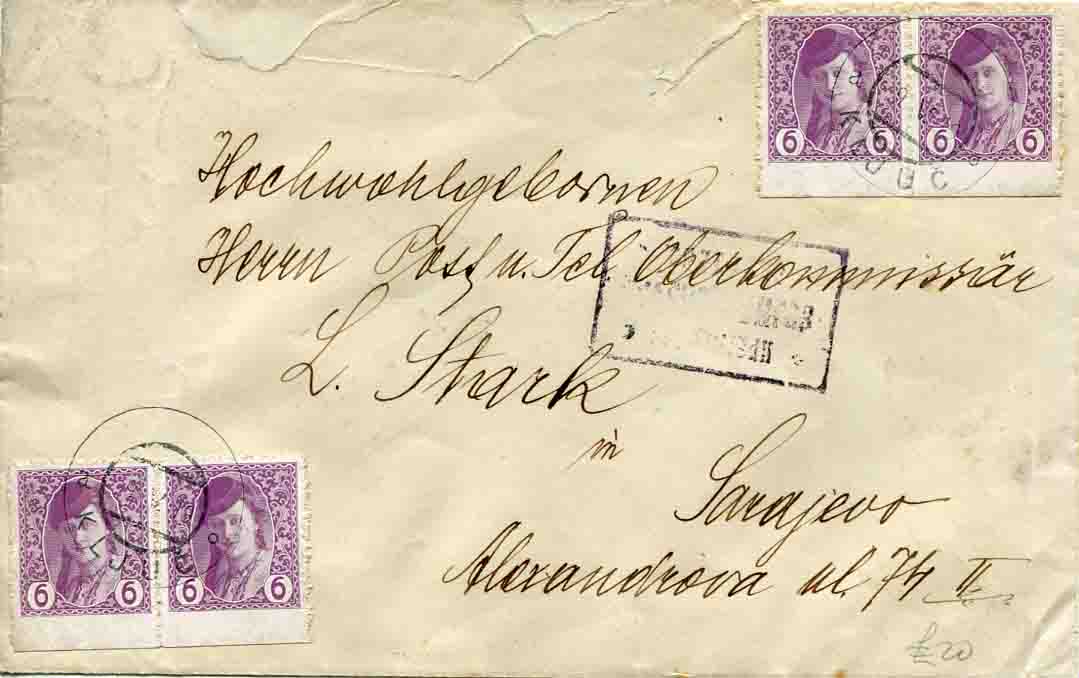 6 6 6 6
Hochwohlgebornen
Herrn Post u. Tel. Oberkommissär
L. Stark
in
Sarajevo
Alexandrova ul. 74 II
6 6 6 6
£20